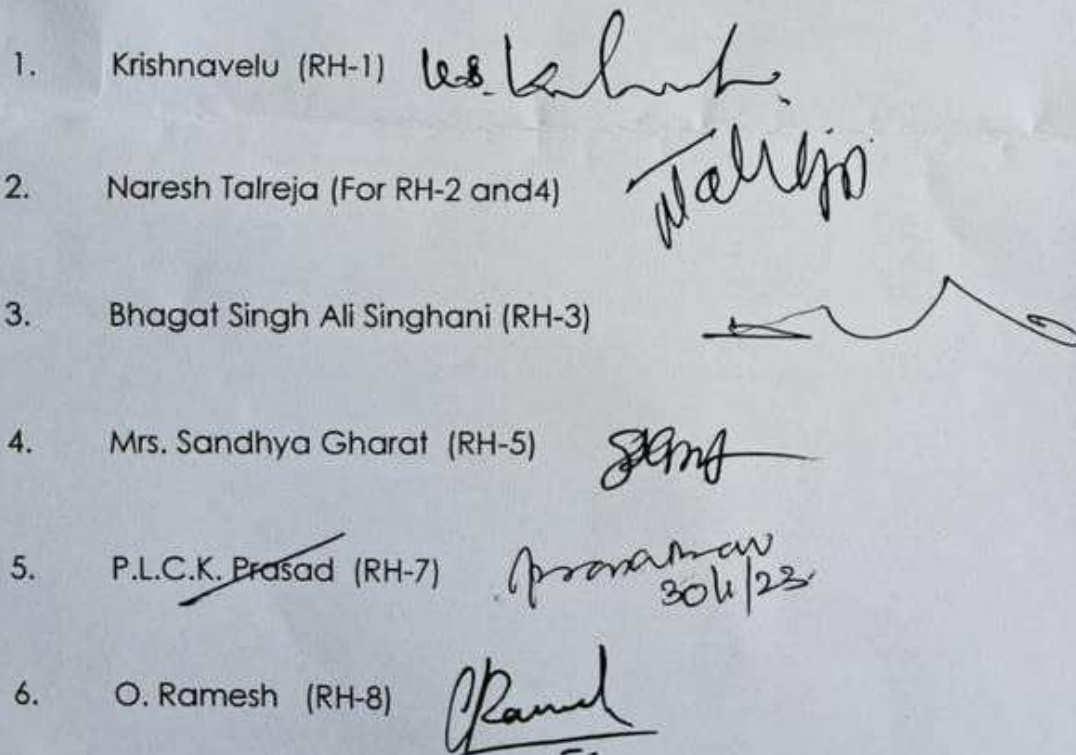 1. Krishnavelu (RH-1)
2. Naresh Talreja (For RH-2 and4) Talreja
3. Bhagat Singh Ali Singhani (RH-3)
4. Mrs. Sandhya Gharat (RH-5)
5. P.L.C.K. Prasad (RH-7)
6. O. Ramesh (RH-8)